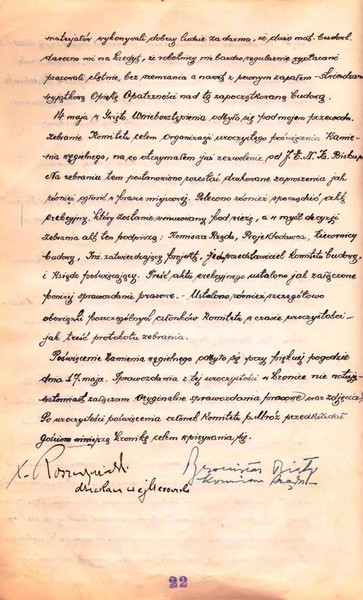 materjałów wykonywali dobrzy ludzie za darmo, że dużo mat. budowl.
darowano mi na kredyt, że robotnicy nie bardzo regularnie wypłacani
pracowali pilnie, bez szemrania a nawet z pewnym zapałem - stwierdzam
wyjątkową Opiekę Opatrzności nad tą zapoczątkowaną budową.
14 maja w Święto Wniebowstąpienia odbyło się pod mojem przewodn.
zebranie Komitetu celem organizacji uroczystego poświęcenia Kamie-
nia węgielnego, na co otrzymałem już zezwolenie od J. E. N. Ks. Biskupa
Na zebraniu tem postanowiono rozesłać drukowane zaproszenia jak
również ogłosić w prasie miejscowej. Polecono również sporządzić akt
erekcyjny, który zostanie wmurowany pod wieżą, a w myśl decyzji
zebrania akt ten podpiszą: Komisarz Rządu, Projektodawca, Kierownicy
budowy, Inż. zatwierdzający projekty, przedstawiciel Komitetu budowy,
i Ksiądz poświęcający. Treść aktu erekcyjnego ustalono jak załączone
poniżej sprawozdanie prasowe. - Ustalono również szczegółowo
obowiązki poszczególnych członków Komitetu w czasie uroczystości -
jak treść protokołu zebrania.
Poświęcenie kamienia węgielnego odbyło się przy pięknej pogodzie
dnia 17. maja. Sprawozdania z tej uroczystości w kronice nie notuję,
natomiast załączam oryginalne sprawozdania prasowe oraz zdjęcia
Po uroczystości poświęcenia członek Komitetu p. Mróz przedkładał
gościom niniejszą kronikę celem wpisywania się.
X.
dziekan wejherowski
Bronisław
Komisarz Rządu
22